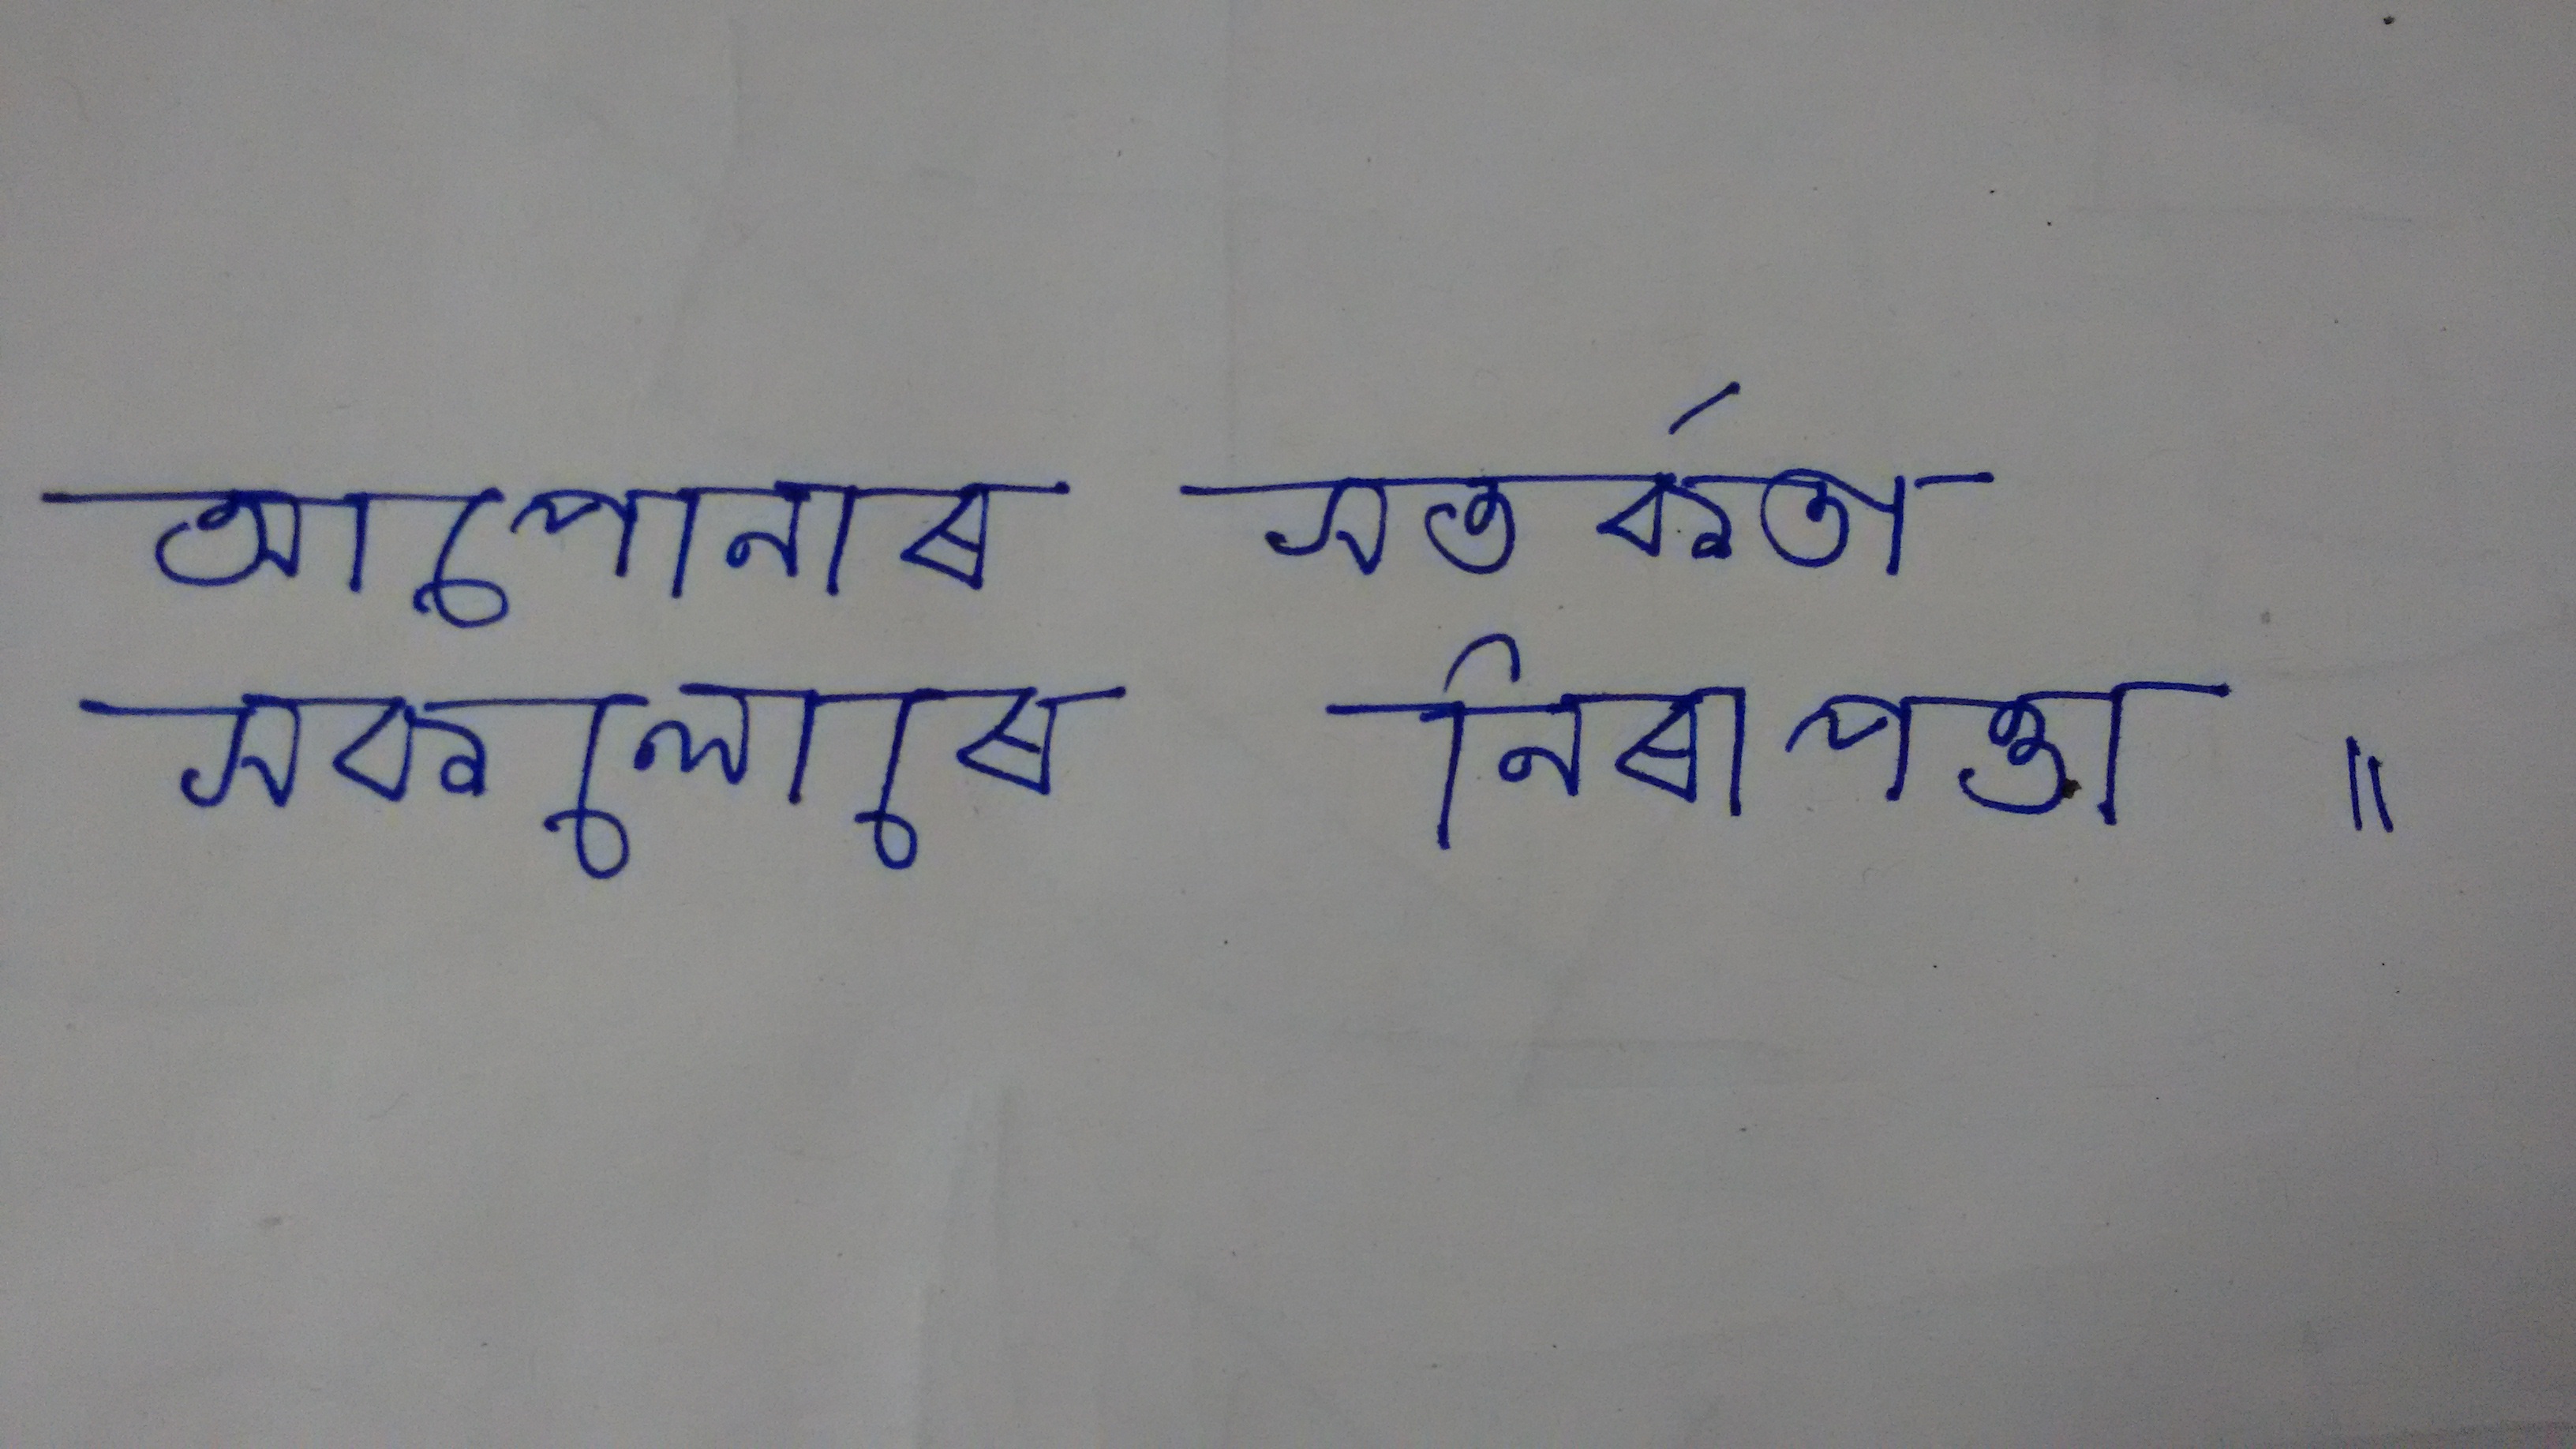 আপোনাৰ সতৰ্কতা
সকলোৰে নিৰাপত্তা ॥